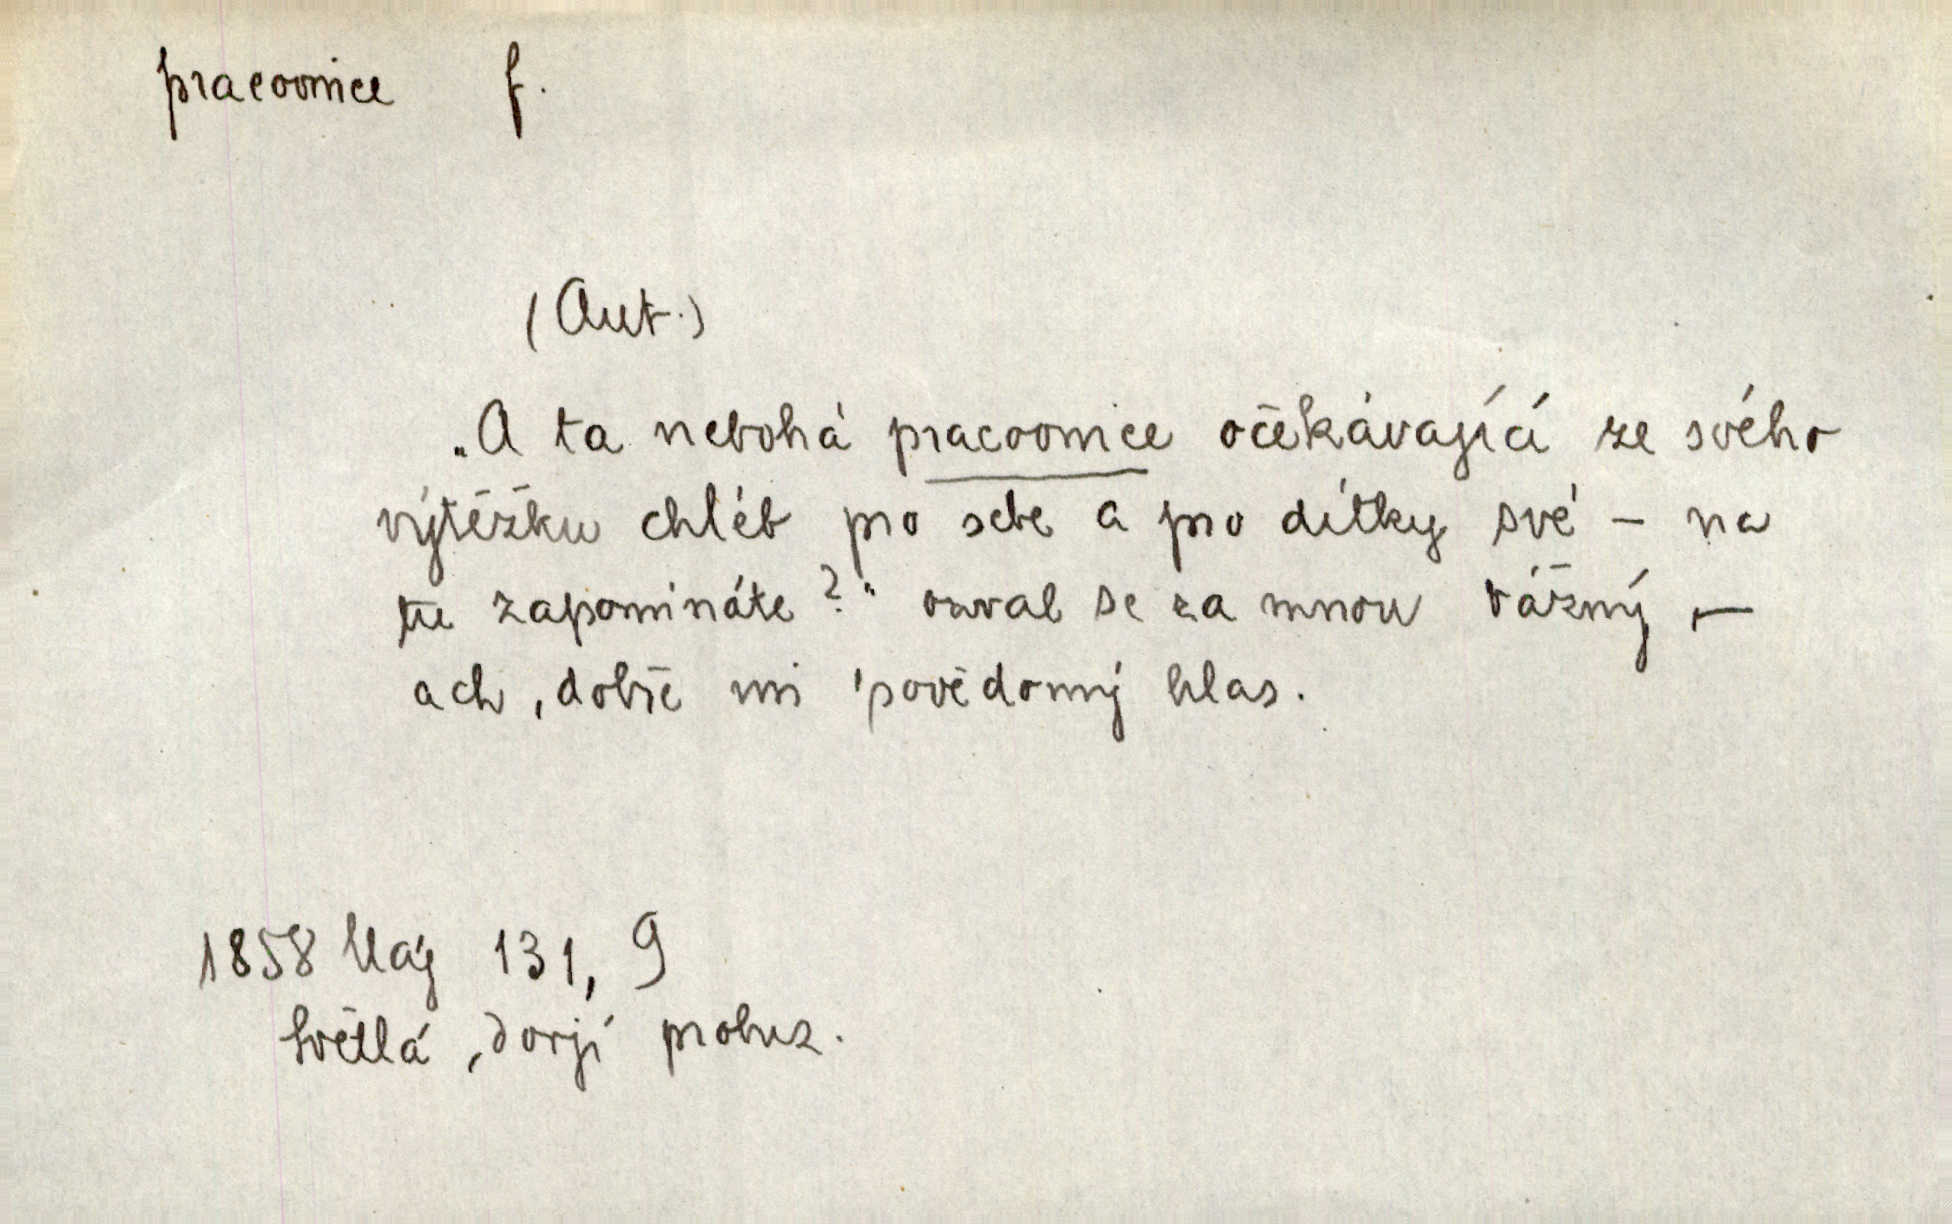 pracovnice f.
(Aut.)
„A ta nebohá pracovnice očekávající ze svého
výtěžku chléb pro sebe a pro dítky své – na
tu zapomináte?" ozval se za mnou vážný –
ach, dobře mi povědomý hlas.
1858 Máj 131, 9
Světlá, Dvojí probuz.